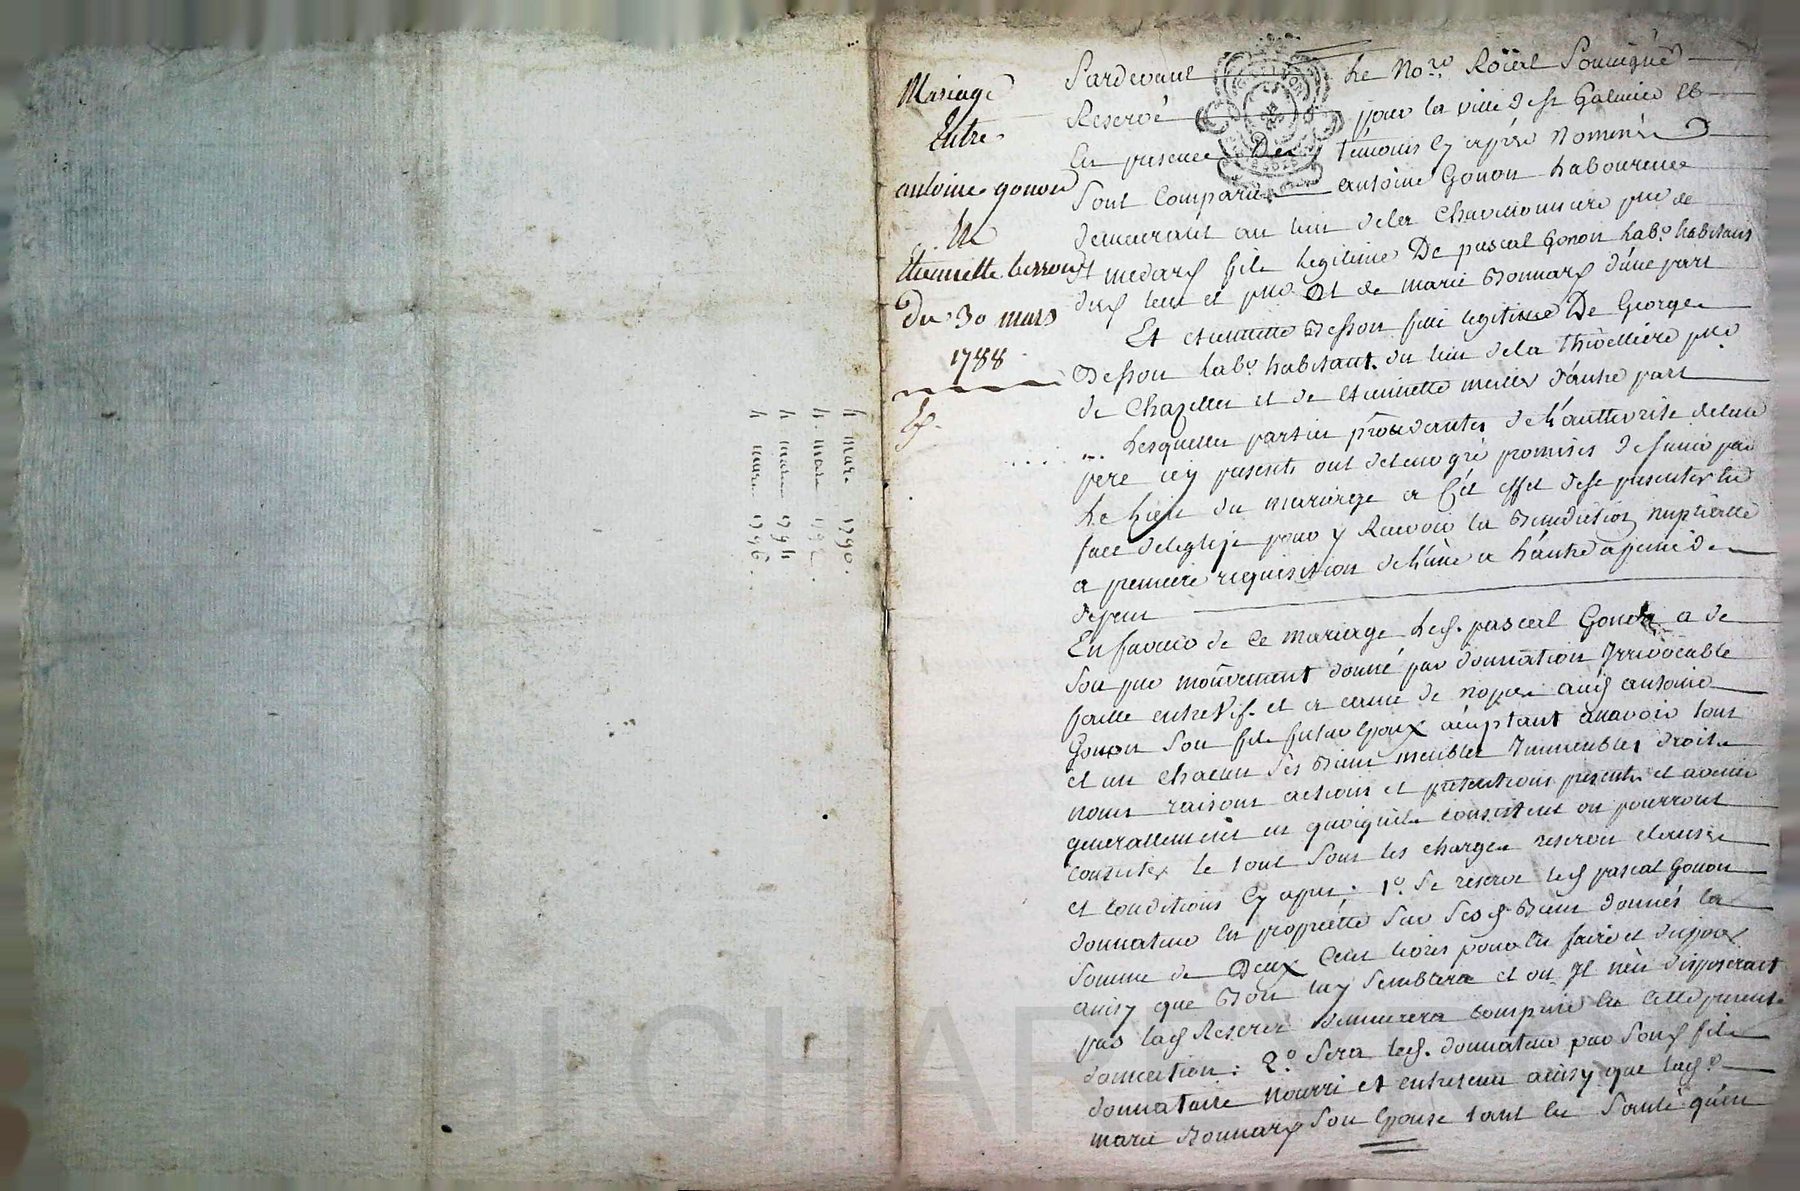 Mariage
Entre
antoine gonon
&
Etiennette besson
du 30 mars
1788
4 mars 1790.
4. mars 179 .
4 mars 1794
4 mars 1796.
Pardevant Le No.re Roïal Soussigné
Reservé pour la ville de st Galmier et
En presence Des témoins cy après Nommés
Sont Comparus antoine Gonon Laboureur
demeurant au lieu dela Chavionniere psse de
st medard fils Legitime De pascal Gonon Lab.r habitant
dud lieu et psse Et de marie Bonnard d'une part
Et etiennette Besson fille legitime De George
Besson Lab.r habitant du lieu dela Thivelliere psse
de Chazelles et de Etiennette meiller d'autre part
Lesquelles parties procedantes de L'authorité deleur
pere icy presents ont deleur gré promis de s'unir par
Le Lien du mariage a Cet effet dese presenter En
face deleglise pour y Recevoir la Benediction nuptialle
a premiere requisition de L'une a L'autre a peine de
depens
En faveur de Ce mariage Led. pascal Gonon a de
Son pur mouvement donné par donnation Irrévocable
faitte entre Vif. et a cause de noces aud antoine
Gonon Son fils futur Epoux acceptant a savoir tous
et un chacun Ses Biens meubles Immeubles droits
noms raisons actions et pretentions presents et avenir
generallement en quoiquils consistent ou pourront
consister le tout Sous les charges reserves clauses
et conditions Cy apres: 1.o Se reserve led pascal Gonon
donnateur En proprietté Sur Sesd. Biens donnés la
Somme de Deux Cent livres pour En faire et disposer
ainsy que Bon luy Semblera et ou Il n'en disposerait
pas lad Reserve demeurera comprise En Cette presente
donnation: 2.o Sera led. donnateur par Sond fils
donnataire nourri et entretenu ainsy que lad.
marie Bonnard Son Epouse tant En Santé qu'en